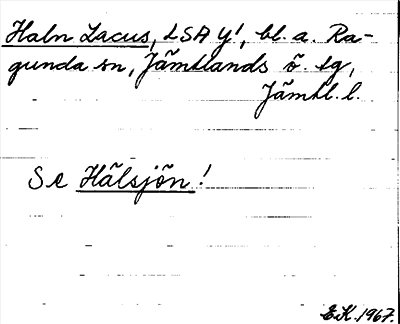 Haln Lacus, LSA Y1, bl. a. Ra-
gunda sn, Jämtlands ö. tg,
Jämtl. l.
Se Hälsjön!
E.K. 1967.